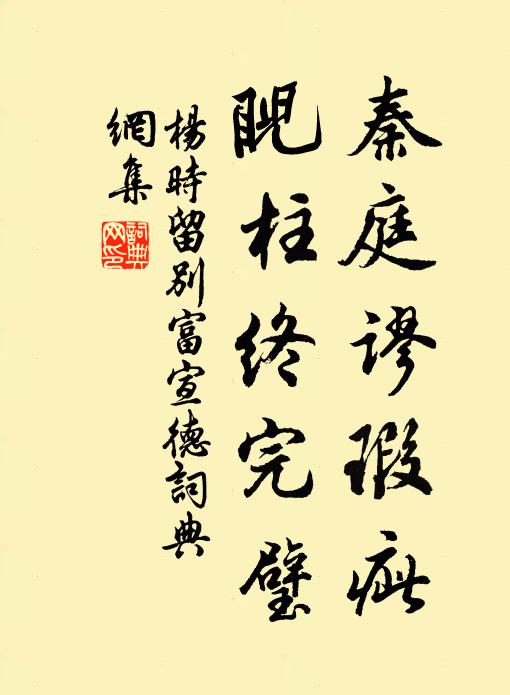 秦庭谬瑕疵
睨柱终完璧
楊時留别富宣德詞典
網集
詞典網印